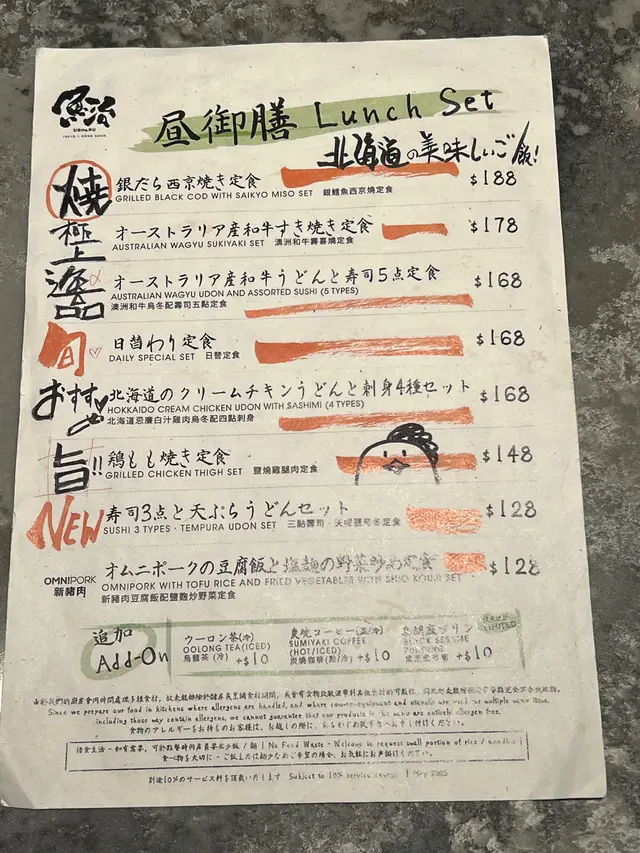 魚治
UOHARU
TOKYO | HONG KONG
昼御膳 Lunch Set
北海道の美味しいご飯!
焼
銀だら西京焼き定食 $188
GRILLED BLACK COD WITH SAIKYO MISO SET 銀鱈魚西京燒定食
極上
オーストラリア産和牛すき焼き定食 $178
AUSTRALIAN WAGYU SUKIYAKI SET 澳洲和牛壽喜燒定食
オーストラリア産和牛うどんと寿司5点定食 $168
AUSTRALIAN WAGYU UDON AND ASSORTED SUSHI (5 TYPES)
澳洲和牛烏冬配壽司五點定食
旬
日替わり定食 $168
DAILY SPECIAL SET 日替定食
おすすめ
北海道のクリームチキンうどんと刺身4種セット $168
HOKKAIDO CREAM CHICKEN UDON WITH SASHIMI (4 TYPES)
北海道忌廉白汁雞肉烏冬配四點刺身
旨!!
鶏もも焼き定食 $148
GRILLED CHICKEN THIGH SET 鹽燒雞腿肉定食
NEW
寿司3点と天ぷらうどんセット $128
SUSHI 3 TYPES・TEMPURA UDON SET 三點壽司・天婦羅烏冬定食
OMNIPORK
新豬肉
オムニポークの豆腐飯と塩麹の野菜炒め定食 $128
OMNIPORK WITH TOFU RICE AND FRIED VEGETABLES WITH SHIO KOUJI SET
新豬肉豆腐飯配鹽麴炒野菜定食
追加
Add-On
ウーロン茶(冷)
OOLONG TEA(ICED)
烏龍茶 (冷) +$10
炭焼コーヒー(温/冷)
SUMIYAKI COFFEE
(HOT/ICED)
炭燒咖啡(熱/冷) +$10
黒胡麻プリン
BLACK SESAME
PUDDING
黑芝麻布甸 +$10
LIMITED
Since we prepare our food in kitchens where allergens are handled, and where common equipment and utensils are used for multiple menu items,
including those may contain allergens, we cannot guarantee that our products in the menu are entirely allergen free.
食物のアレルギーをお持ちのお客様は、お越しの際に、あらかじめ従業員へお申し付けください。
惜食生活 - 如有需要,可於點餐時向店員要求少飯 / 麵 | No Food Waste - Welcome to request small portion of rice / noodles
食べ物を大切に - ご飯または麺少なめご希望の場合、お気軽にお声掛けください。
別途10%のサービス料を頂戴いたします Subject to 10% service charge | May 2025